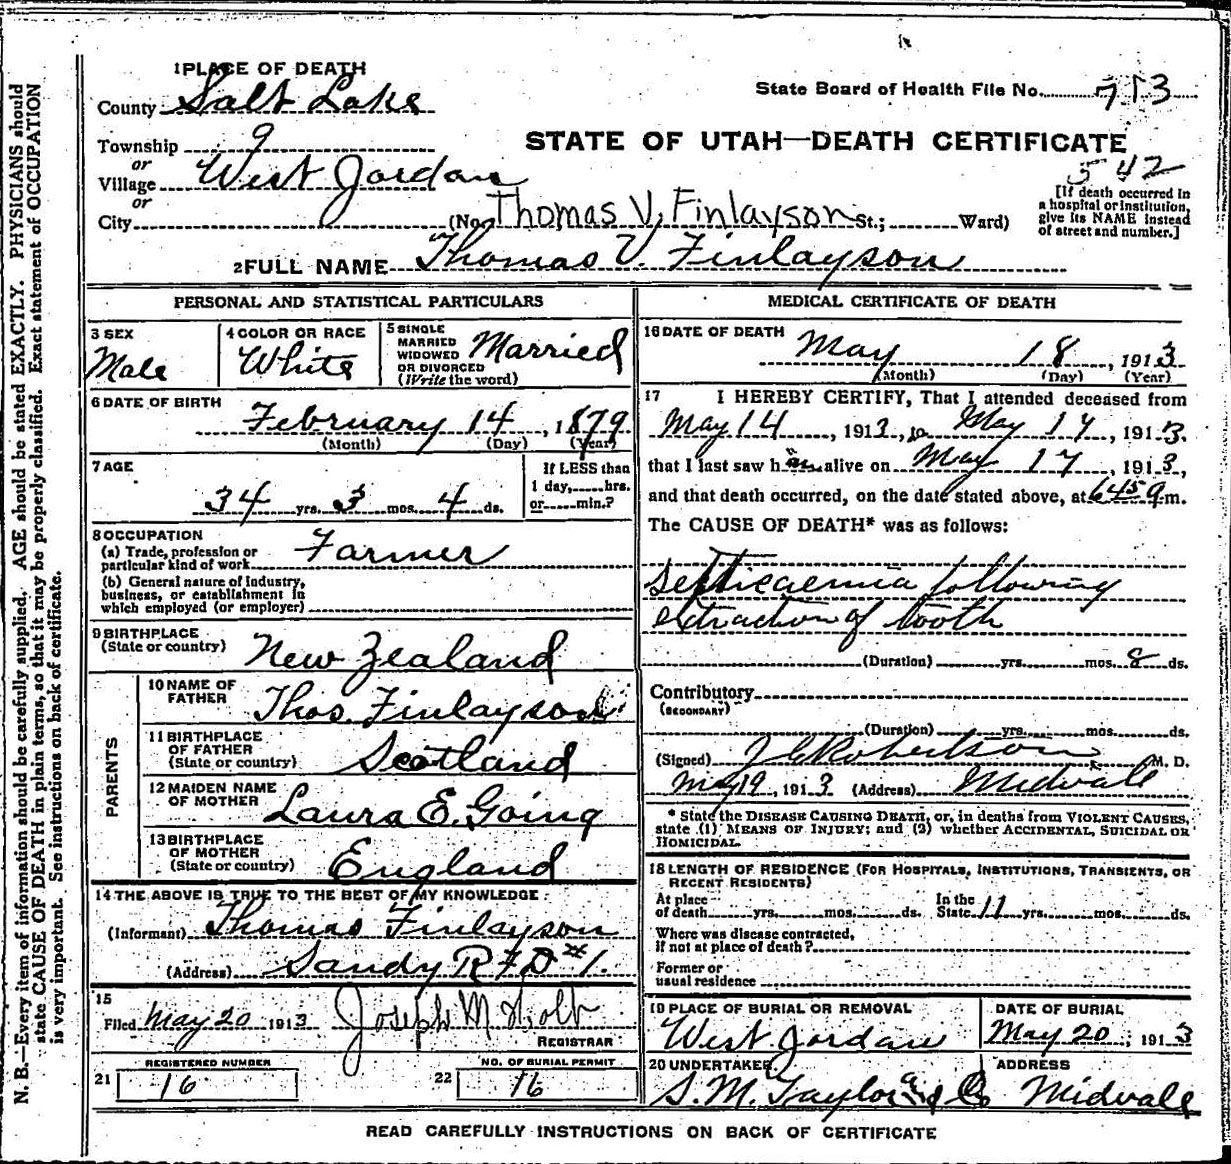 1 PLACE OF DEATH
County Salt Lake
State Board of Health File No. 713
Township 9
STATE OF UTAH—DEATH CERTIFICATE
or
Village West Jordan
542
or
City (No. Thomas V. Finlayson St.; Ward)
[If death occurred in a hospital or institution, give its NAME instead of street and number.]
2 FULL NAME Thomas V. Finlayson
PERSONAL AND STATISTICAL PARTICULARS
3 SEX
Male
4 COLOR OR RACE
White
5 SINGLE
MARRIED
WIDOWED
OR DIVORCED
(Write the word)
Married
6 DATE OF BIRTH
February 14, 1879
(Month) (Day) (Year)
7 AGE
34 yrs. 3 mos. 4 ds.
If LESS than
1 day,......hrs.
or......min.?
8 OCCUPATION
(a) Trade, profession or
particular kind of work Farmer
(b) General nature of industry,
business, or establishment in
which employed (or employer)
9 BIRTHPLACE
(State or country) New Zealand
PARENTS
10 NAME OF
FATHER Thos. Finlayson
11 BIRTHPLACE
OF FATHER
(State or country) Scotland
12 MAIDEN NAME
OF MOTHER Laura E. Going
13 BIRTHPLACE
OF MOTHER
(State or country) England
14 THE ABOVE IS TRUE TO THE BEST OF MY KNOWLEDGE
(Informant) Thomas Finlayson
(Address) Sandy R F D #1.
15
Filed May 20 1913 Joseph M Holt
REGISTRAR
REGISTERED NUMBER
21 16
NO. OF BURIAL PERMIT
22 16
MEDICAL CERTIFICATE OF DEATH
16 DATE OF DEATH
May 18, 1913
(Month) (Day) (Year)
17 I HEREBY CERTIFY, That I attended deceased from
May 14, 1913, to May 17, 1913.
that I last saw him alive on May 17, 1913,
and that death occurred, on the date stated above, at 645 a m.
The CAUSE OF DEATH* was as follows:
Septicaemia following
extraction of tooth
(Duration) yrs. mos. 8 ds.
Contributory
(SECONDARY)
(Duration) yrs. mos. ds.
(Signed) Robertson M. D.
May 19, 1913 (Address) Midvale
* State the DISEASE CAUSING DEATH, or, in deaths from VIOLENT CAUSES,
state (1) MEANS OF INJURY; and (2) whether ACCIDENTAL, SUICIDAL OR
HOMICIDAL.
18 LENGTH OF RESIDENCE (FOR HOSPITALS, INSTITUTIONS, TRANSIENTS, OR
RECENT RESIDENTS)
At place
of death yrs. mos. ds.
In the
State 11 yrs. mos. ds.
Where was disease contracted,
if not at place of death?
Former or
usual residence
19 PLACE OF BURIAL OR REMOVAL
West Jordan
DATE OF BURIAL
May 20, 1913
20 UNDERTAKER
S. M. Taylor and Co
ADDRESS
Midvale
READ CAREFULLY INSTRUCTIONS ON BACK OF CERTIFICATE
N. B.—Every item of information should be carefully supplied. AGE should be stated EXACTLY. PHYSICIANS should
state CAUSE OF DEATH in plain terms, so that it may be properly classified. Exact statement of OCCUPATION
is very important. See instructions on back of certificate.